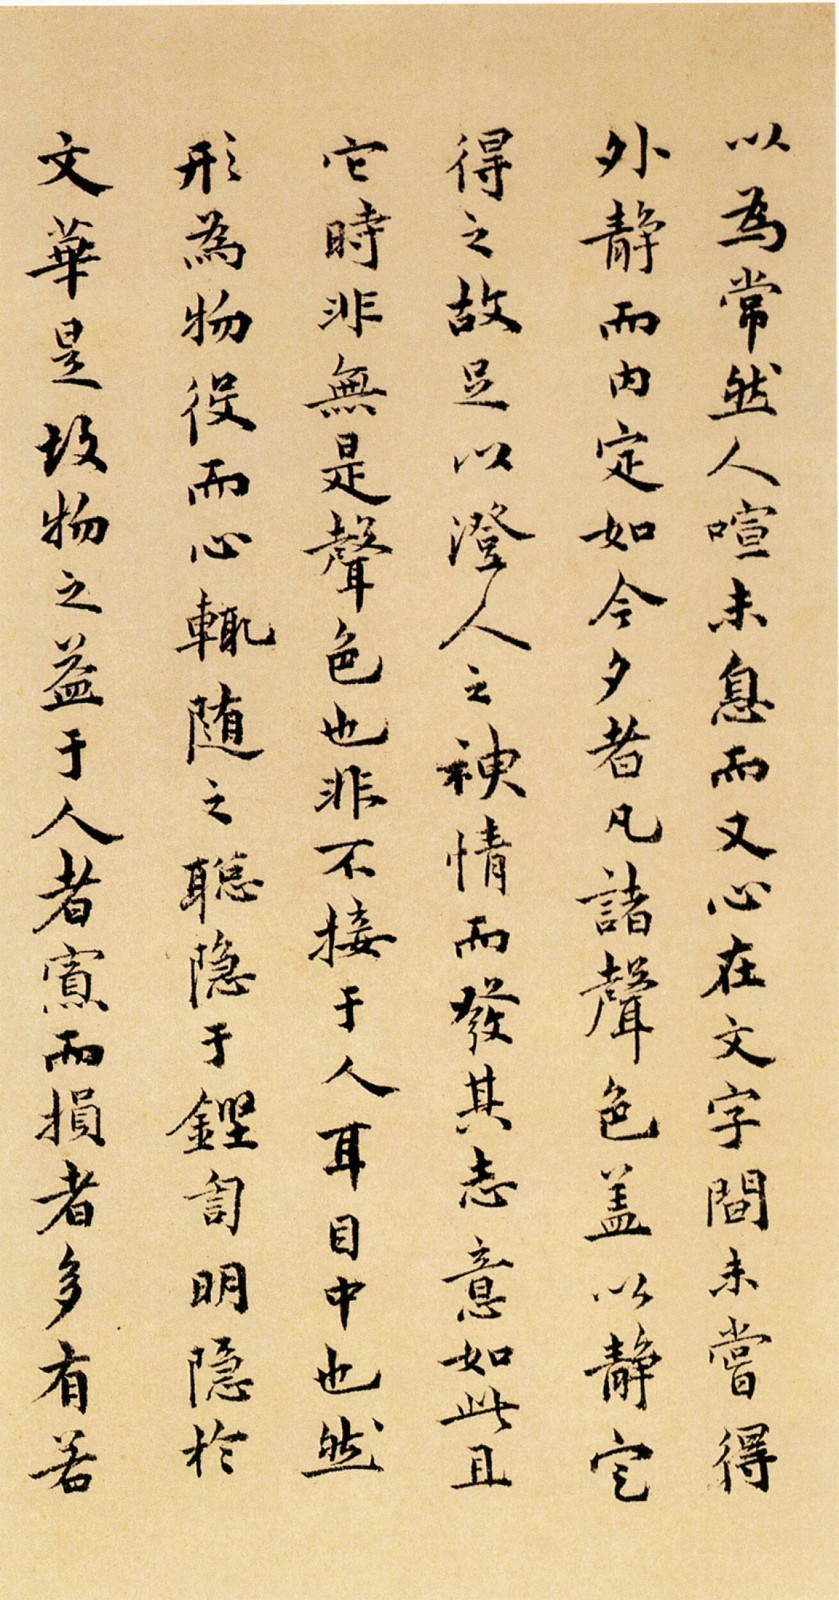 以為常然人喧未息而又心在文字間未嘗得
外静而内定如今夕者凡諸聲色盖以静定
得之故足以澄人之神情而發其志意如此且
它時非無是聲色也非不接于人耳目中也然
形為物役而心輒随之聪隐于鏗訇明隐於
文華是故物之益于人者寡而損者多有若